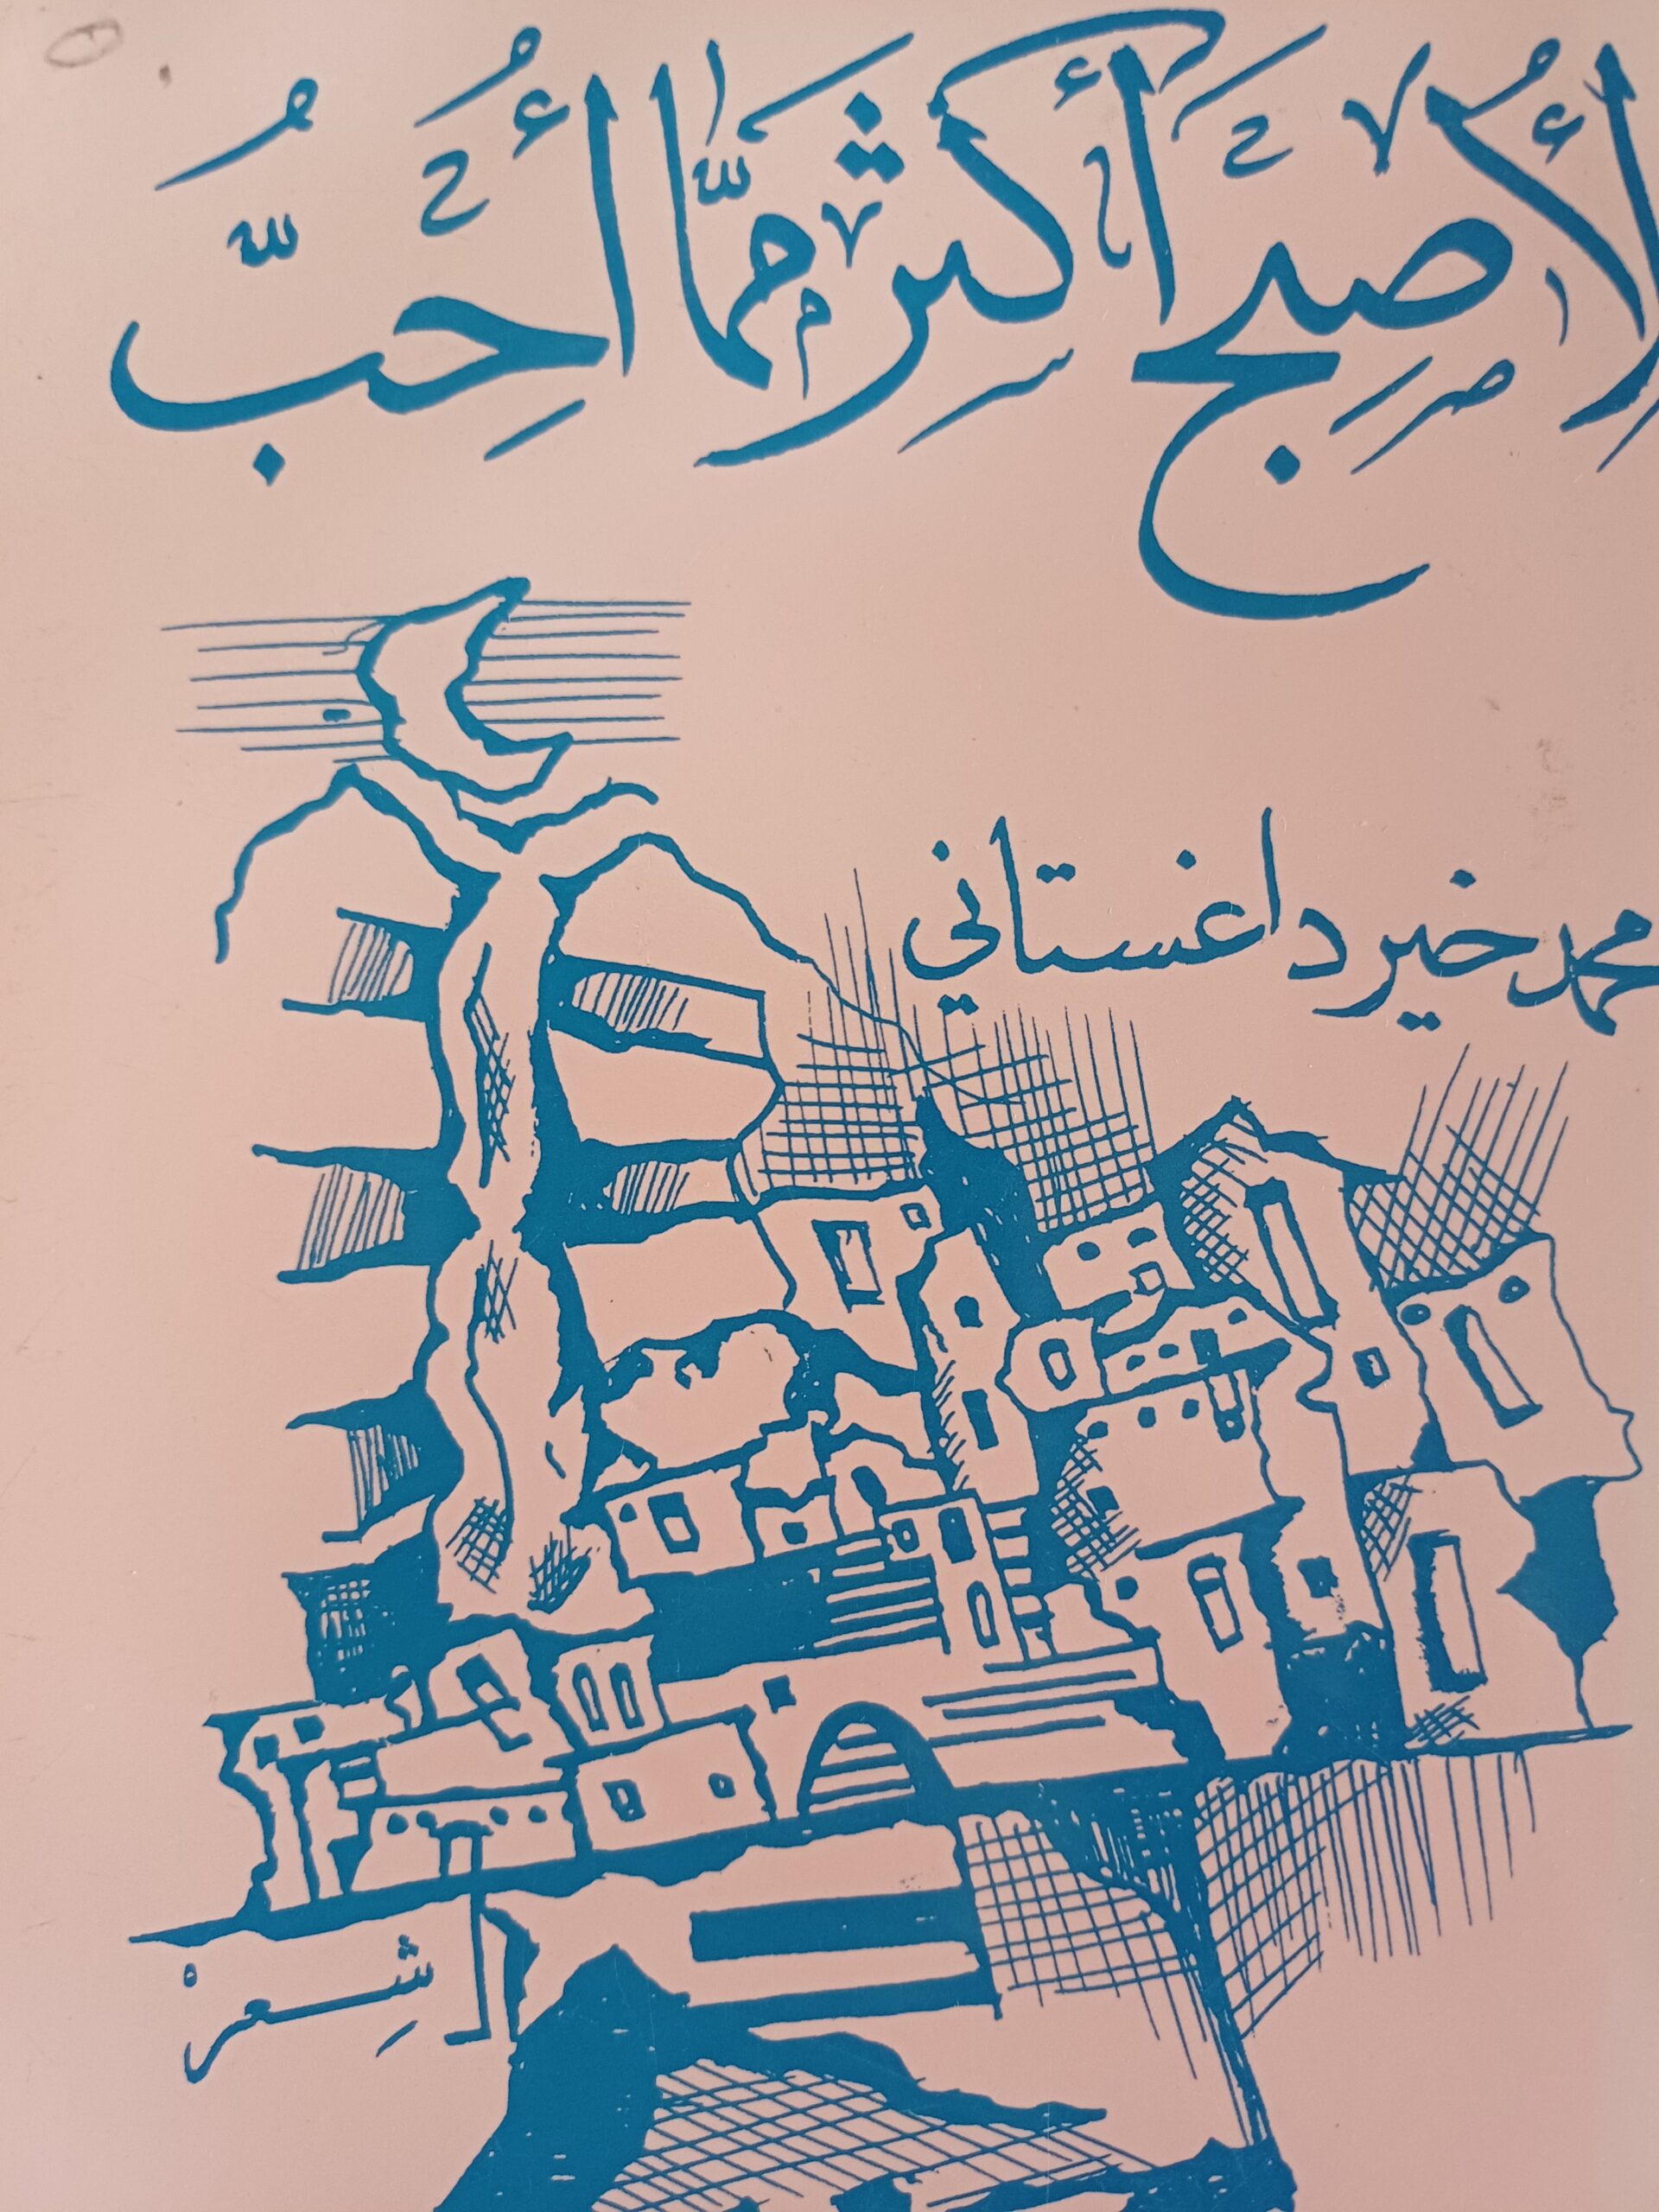 لِأُصبِحَ أكثرَ مِمَّا أُحِبُّ
محمد خير داغستاني
شِعرْ